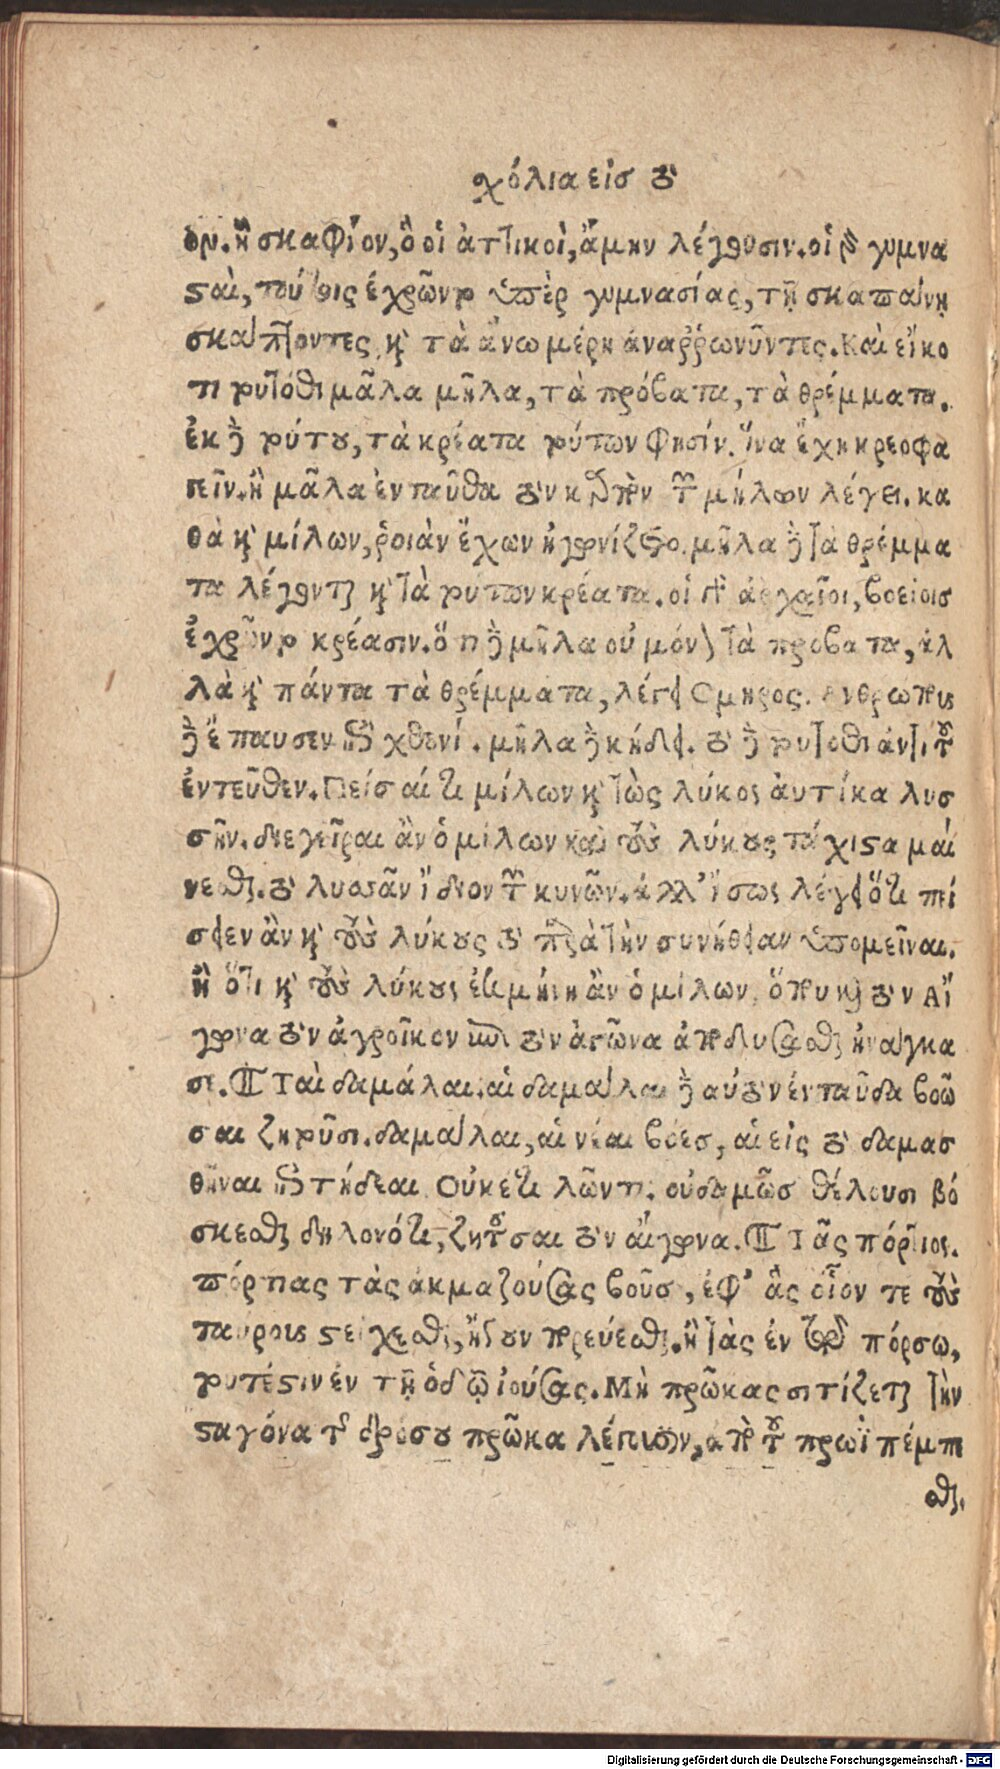 χόλια εἰσ τὸ
ον. ἢ σκαφίον, ὃ οἱ ἀττικοὶ, ἄμην λέγουσιν. οἱ γὰρ γυμνα
ϛαὶ, τούτοις ἐχρῶντο ὑπὲρ γυμνασίας, τῇ σκαπάνῃ
σκάπτοντες, καὶ τὰ ἄνω μέρη ἀναῤῥωνῦντες. Καὶ εἴκο
τι τουτόθι μᾶλα μῆλα, τὰ πρόβατα, τὰ θρέμματα.
ἐκ δὲ τούτου, τὰ κρέατα τούτων φησίν. ἵνα ἔχη κρεοφα
γεῖν. ἢ μᾶλα ἐνταῦθα τὸν καρπὸν τῶν μήλων λέγει. κα
θὰ καὶ μίλων, ῥοιὰν ἔχων ἠγωνίζετο. μῆλα δὲ τὰ θρέμμα
τα λέγονται καὶ τὰ τούτων κρέατα. οἱ γὰρ ἀρχαῖοι, βοείοισ
ἐχρῶντο κρέασιν. ὅτι δὲ μῆλα οὐ μόνον τὰ πρόβατα, ἀλ
λὰ καὶ πάντα τὰ θρέμματα, λέγει Ὅμηρος. ἀνθρώπους
δὲ ἔπαυσεν ἐπὶ χθονί. μῆλα δὲ κήδει. τὸ δὲ τουτόθι ἀντὶ τοῦ
ἐντεῦθεν. Πείσαί τι μίλων καὶ τὼς λύκος ἀυτίκα λυσ
σῆν. διεγεῖραι ἂν ὁ μίλων καὶ τοὺς λύκους τάχιϛα μαί
νεσθαι. τὸ λυσσᾶν ἴδιον τῶν κυνῶν. ἀλλ' ἴσως λέγει ὅτι πεί
σειεν ἂν καὶ τοὺς λύκους τὸ παρὰ τὴν συνήθειαν ὑπομεῖναι.
ἢ ὅτι καὶ τοὺς λύκους ἐκμήνη ἂν ὁ μίλων, ὅπου καὶ τὸν Αἴ
γωνα τὸν ἀγροῖκον ἐπὶ τὸν ἀγῶνα ἀποδύσασθαι ἠνάγκα
σε. ¶ Ταὶ δαμάλαι. αἱ δαμάλαι δὲ αὐτὸν ἐνταῦδα βοῶ
σαι ζητοῦσι. δαμάλαι, αἱ νέαι βόεσ, αἱ εἰς τὸ δαμασ
θῆναι ἐπιτήδειαι. Οὐκέτι λῶντι. οὐδαμῶσ θέλουσι βό
σκεσθαι δηλονότι, ζητοῦσαι τὸν αἴγωνα. ¶ Τᾶς πόρτιος.
πόρτιας τὰς ἀκμαζούσας βοῦσ, ἐφ' ἃς οἷον τε τοὺς
ταύρους ϛείχεσθαι, ἤγουν πορεύεσθαι. ἢ τὰς ἐν τῷ πόρσω,
τουτέϛιν ἐν τῇ ὁδῷ ἰούσας. Μὴ πρῶκας σιτίζεται τὴν
ϛαγόνα τῆς δρόσου πρῶκα λέγουσιν, ἀπὸ τοῦ πρωῒ πέμπε
σθαι.